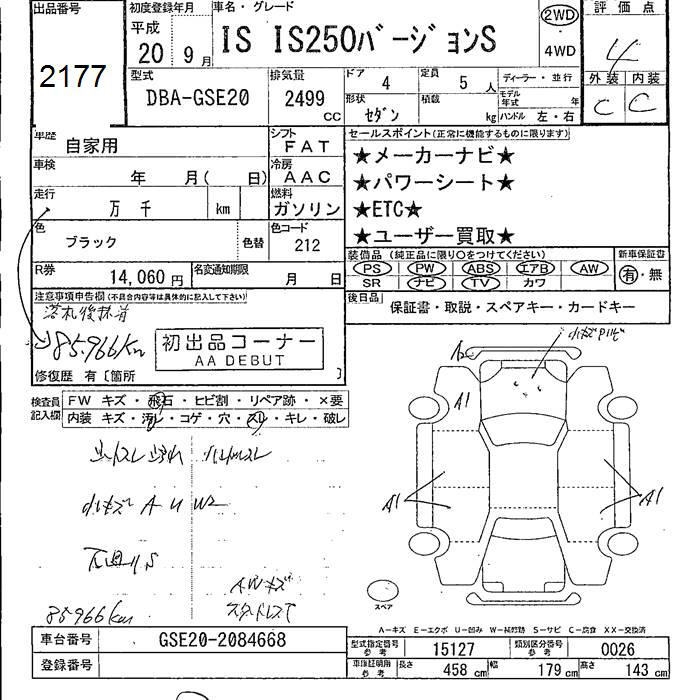 出品番号
2177
初度登録年月
平成
20 9月
車名・グレード
IS IS250バージョンS
2WD
4WD
評価点
4
外装 内装
C C
型式
DBA-GSE20
排気量
2499
CC
ドア 4
定員 5 人
形状 セダン
積載 kg
ディーラー・並行
モデル年式 年
ハンドル 左・右
車歴 自家用
シフト FAT
車検 年 月( 日)
冷房 AAC
走行 万 千 km
燃料 ガソリン
色 ブラック 色替
色コード 212
R券 14,060円
名変通知期限 月 日
セールスポイント(正常に機能するものに限ります)
★メーカーナビ★
★パワーシート★
★ETC★
★ユーザー買取★
装備品(純正品に限り○をつけてください)
PS PW ABS エアB AW
SR ナビ TV カワ
新車保証書
有・無
後日品 保証書・取説・スペアキー・カードキー
注意事項申告欄(不具合内容等は具体的に記入して下さい)
85,966km
初出品コーナー
AA DEBUT
修復歴 有〔箇所 〕
検査員記入欄
FW キズ・飛石・ヒビ割・リペア跡・×要
内装 キズ・汚レ・コゲ・穴・スレ・キレ・破レ
小キズ A U W2
下廻りS
AWキズ
スタッドレスT
85966km
A1
A1
A1
スペア
A-キズ E-エクボ U-凹み W-補修跡 S-サビ C-腐食 XX-交換済
車台番号 GSE20-2084668
登録番号
型式指定番号 参考 15127
類別区分番号 参考 0026
車庫証明用 参考 長さ 458 cm 幅 179 cm 高さ 143 cm